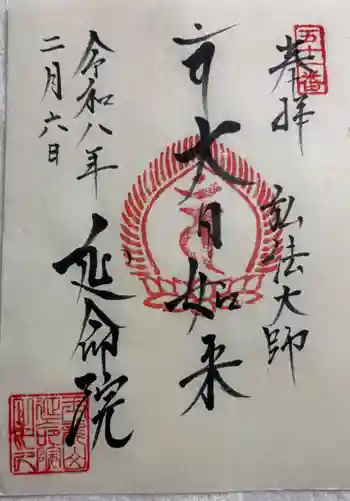 五十一番
奉拝
弘法大師
大日如来
延命院
令和八年
二月六日